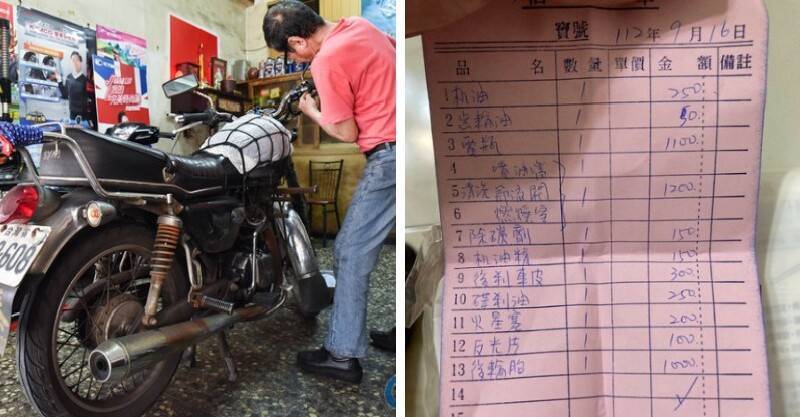 寶號 112年9月16日
品名 數量 單價 金額 備註
1 机油 1 250
2 齒輪油 1
3 電瓶 1 1100
4 噴油嘴
5 清洗 節流閥 1 1200
6 燃燒室
7 除碳劑 1 150
8 机油精 1 150
9 後剎車皮 1 300
10 碟剎油 1 250
11 火星塞 1 200
12 反光片 1 100
13 後輪胎 1 1000
14